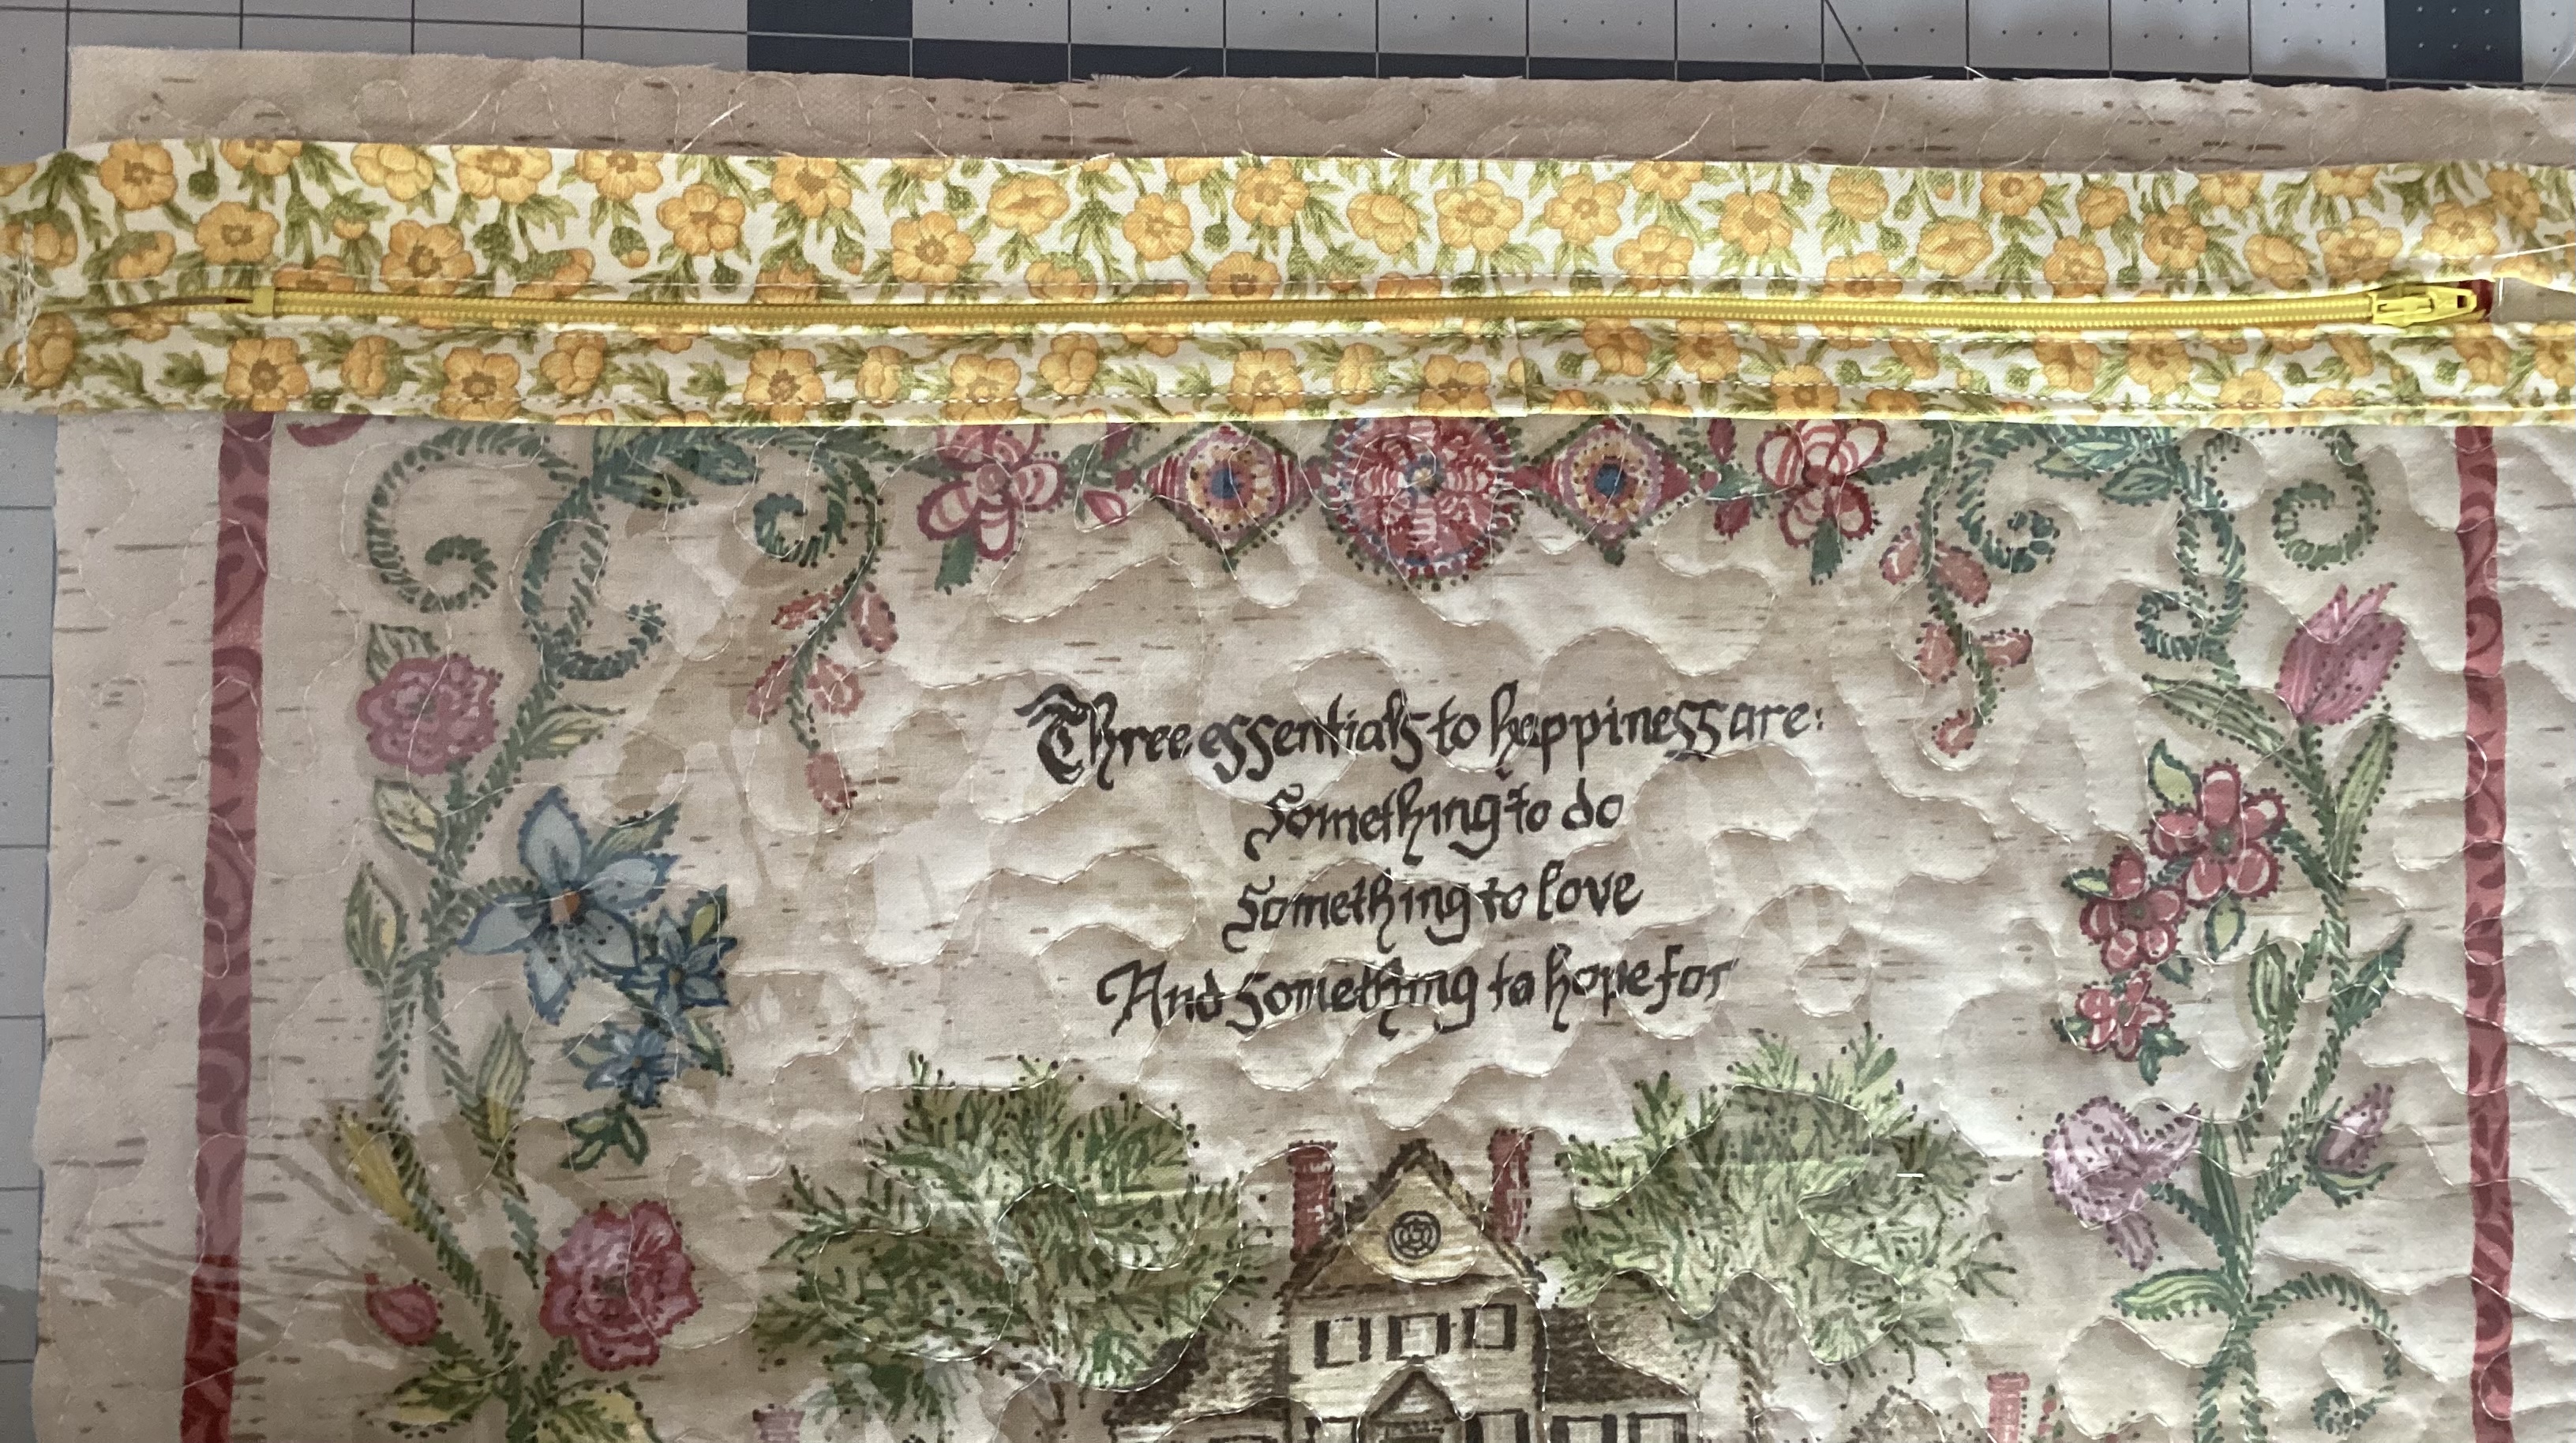 Three essentials to happiness are:
Something to do
Something to love
And Something to hope for